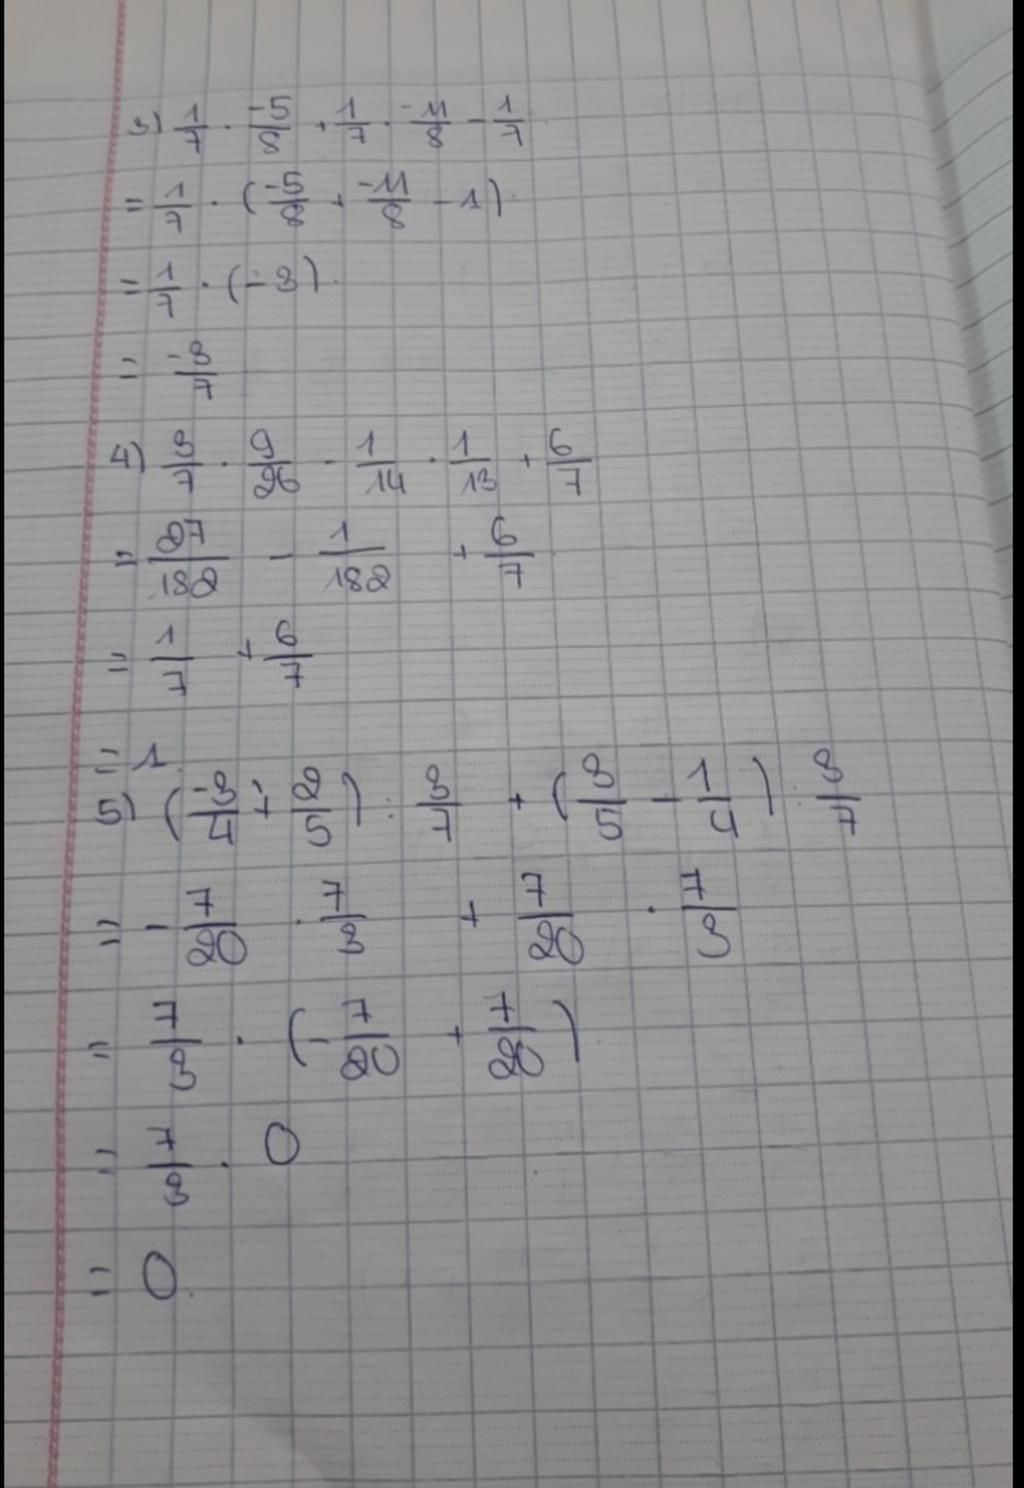 3) 1/7 . -5/8 + 1/7 . -11/8 - 1/7
= 1/7 . (-5/8 + -11/8 - 1).
= 1/7 . (-3).
= -3/7
4) 3/7 . 9/26 - 1/14 . 1/13 + 6/7
= 27/182 - 1/182 + 6/7
= 1/7 + 6/7
= 1.
5) (-3/4 + 2/5) : 3/7 + (3/5 - 1/4) : 3/7
= - 7/20 . 7/3 + 7/20 . 7/3
= 7/3 . (-7/20 + 7/20)
= 7/3 . 0
= 0.